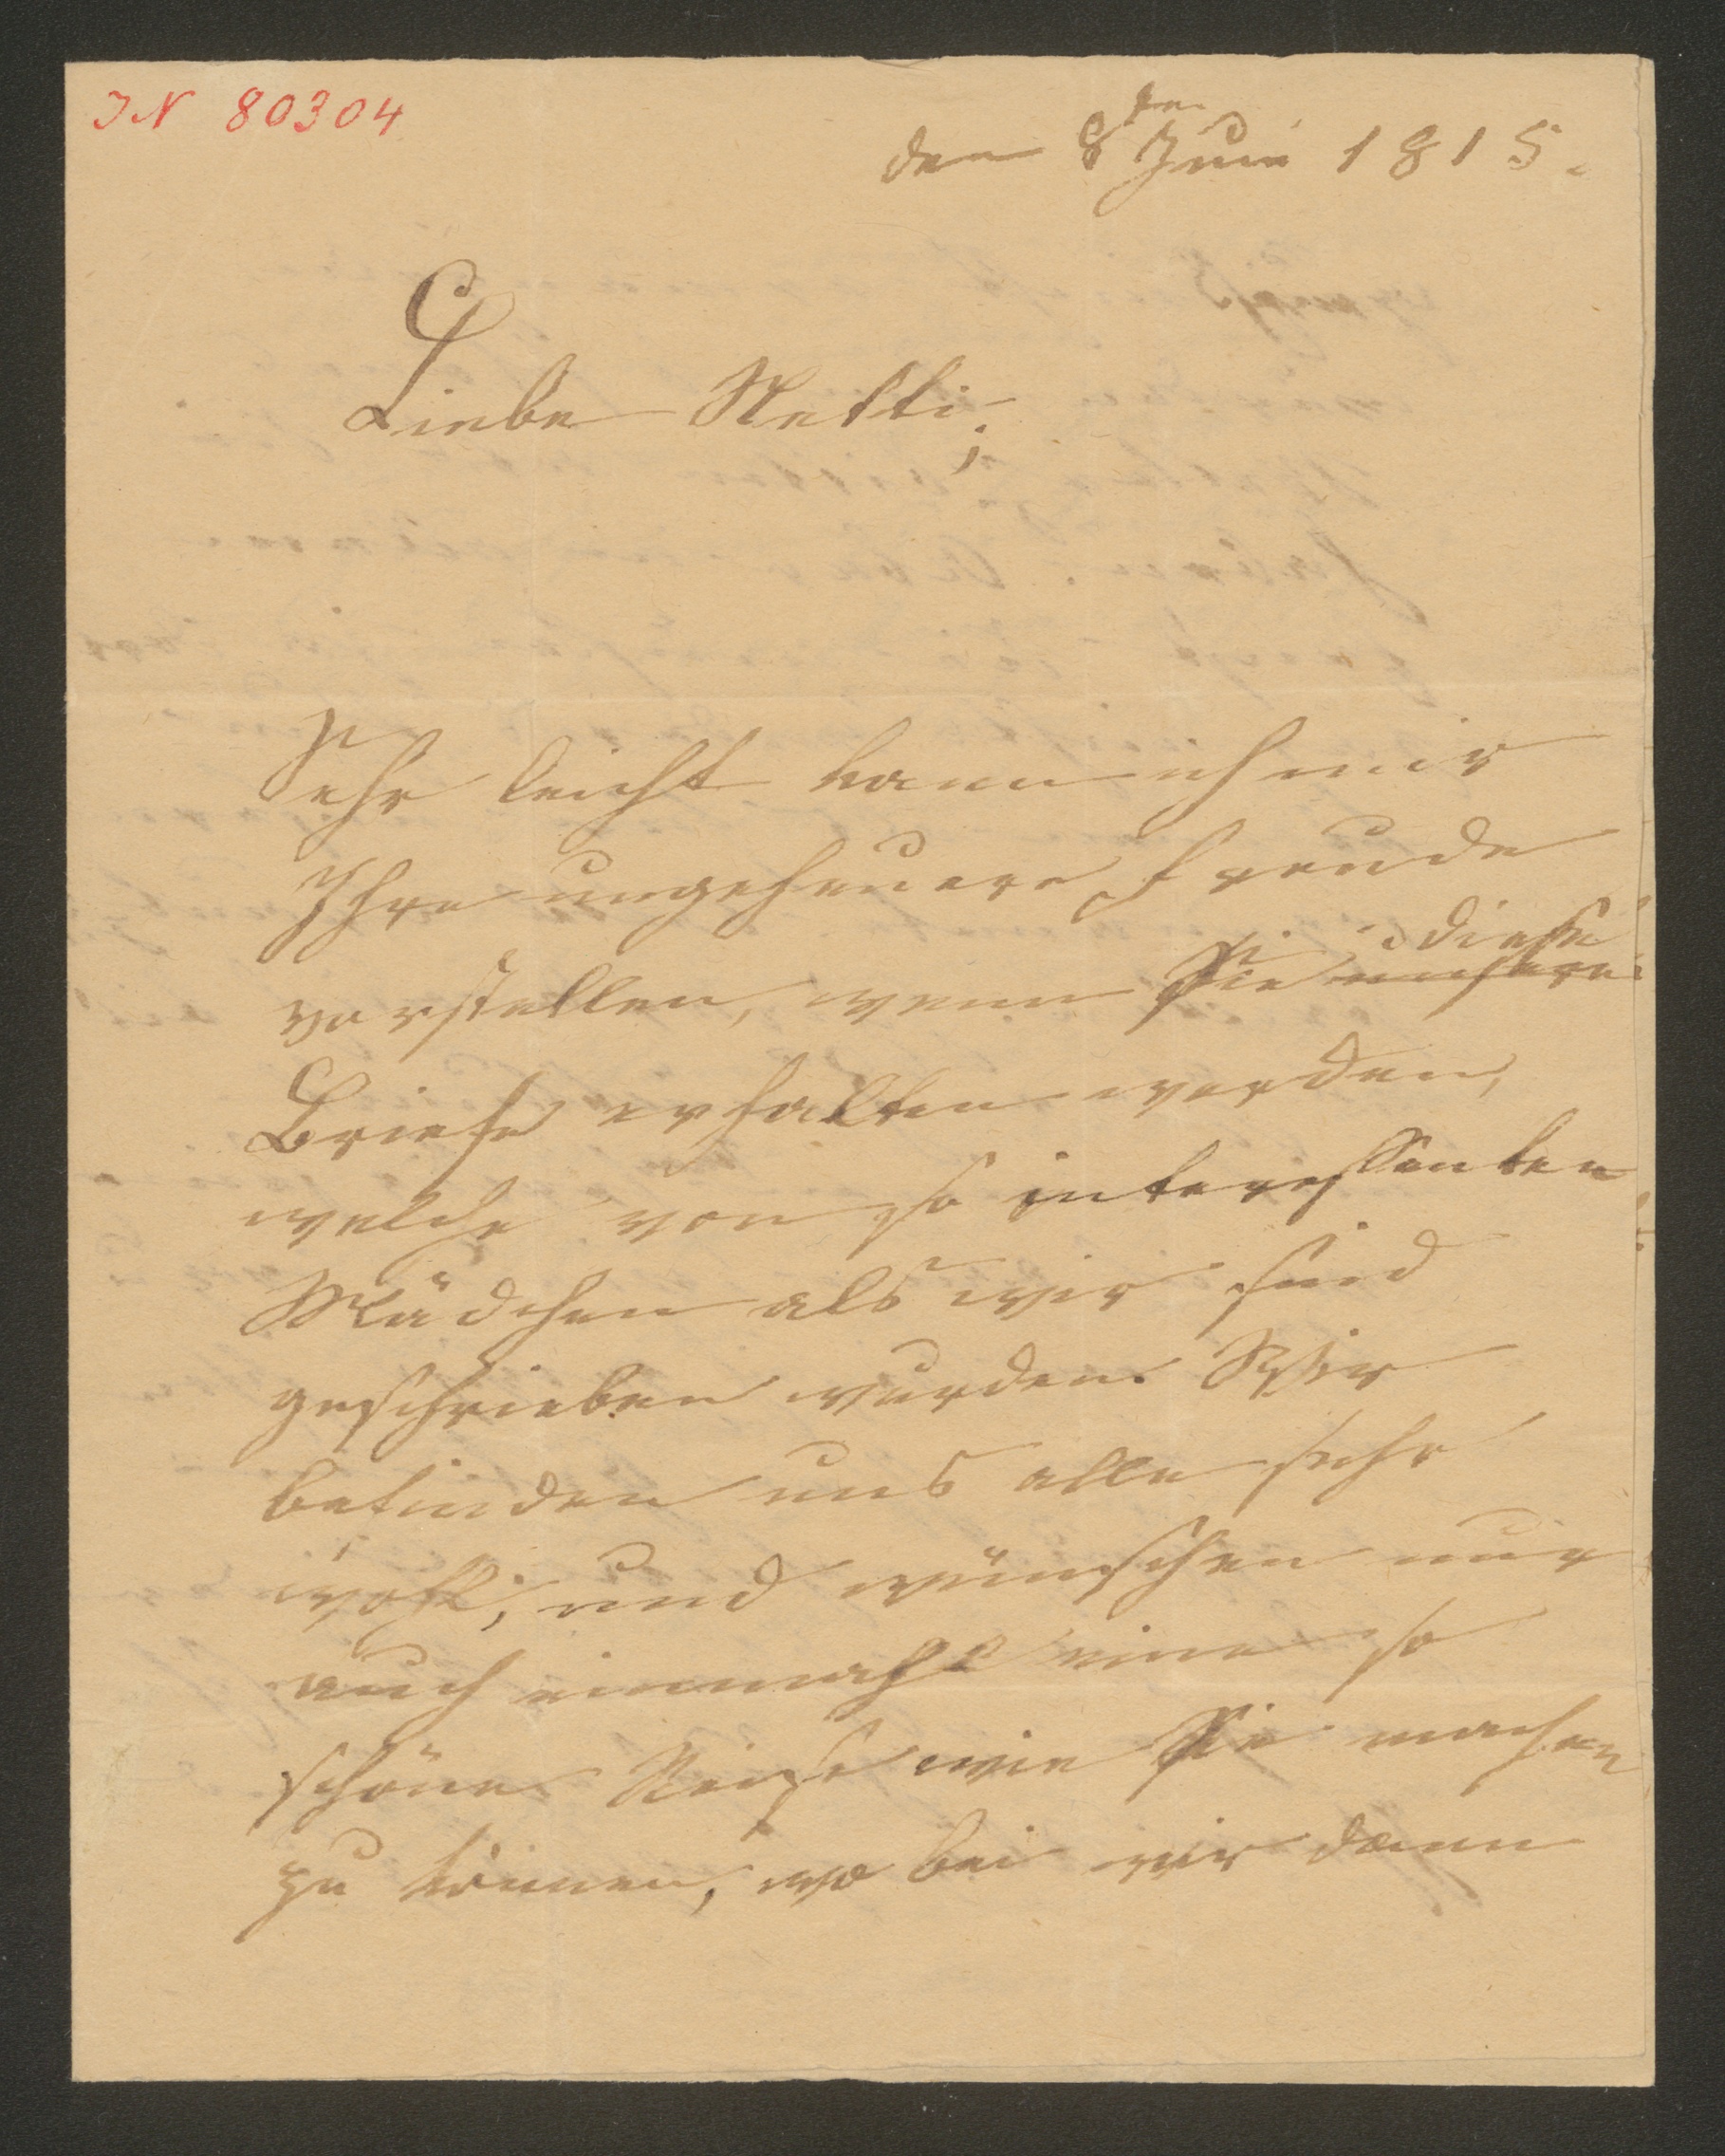 IN 80304
den 8ten Juni 1815.
Liebe Netti;
Sehr leicht kann ich mir
Ihre ungeheuere Freude
vorstellen, wenn Sie unsere diese
Briefe erhalten werden,
welche von so interessanten
Mädchen als wir sind
geschrieben wurden. Wir
befinden uns alle sehr
wohl, und wünschen nur
auch einmahl eine so
schöne Reise wie Sie machen
zu können, wo bei wir dann